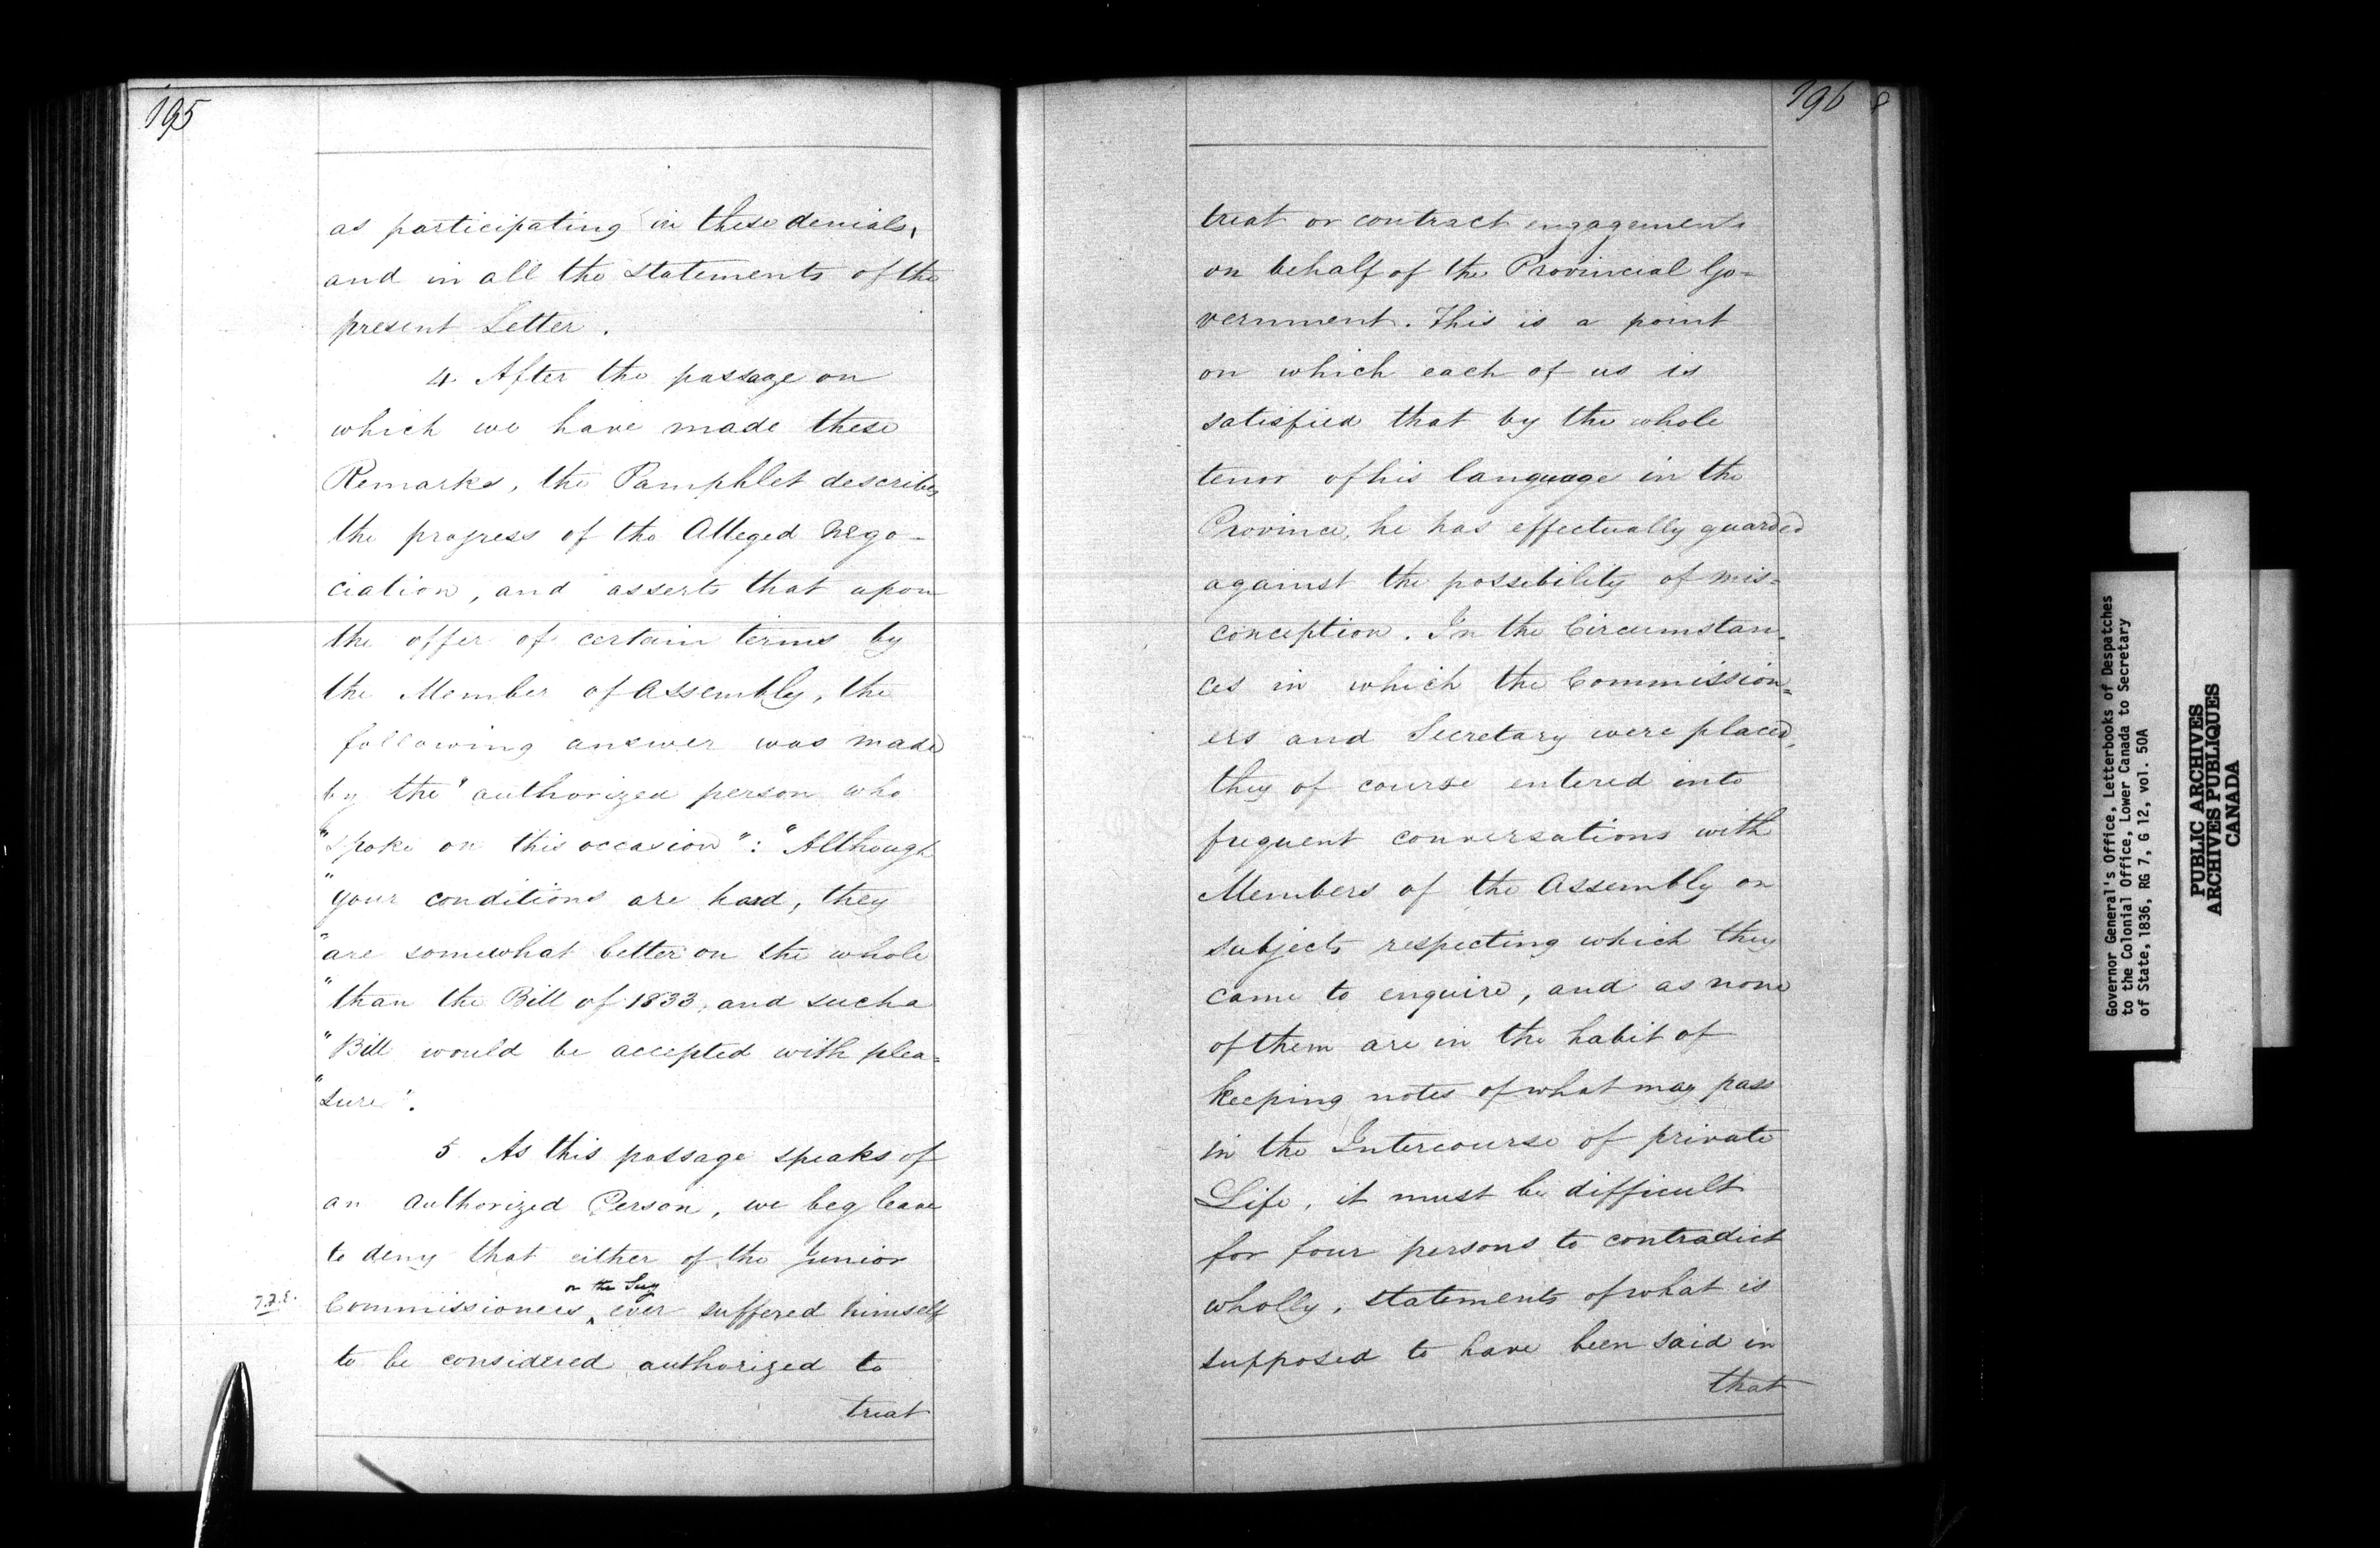 195
as participating in these denials,
and in all the statements of the
present Letter.
4 After the passage on
which we have made these
Remarks, the Pamphlet describes
the progress of the Alleged nego-
ciation, and asserts that upon
the offer of certain terms by
the Member of Assembly, the
following answer was made
by the "authorized person who
"spoke on this occasion": "Although
"your conditions are hard, they
"are somewhat better on the whole
"than the Bill of 1833, and such a
"Bill would be accepted with plea=
"sure".
5 As this passage speaks of
an authorized Person, we beg leave
to deny that either of the Junior
or the Secy
Commissioners, ever suffered himself
to be considered authorized to
treat
196
treat or contract engagements
on behalf of the Provincial Go=
vernment. This is a point
on which each of us is
satisfied that by the whole
tenor of his language in the
Province, he has effectually guarded
against the possibility of mis=
conception. In the Circumstan=
ces in which the Commission=
ers and Secretary were placed,
they of course entered into
frequent conversations with
Members of the Assembly on
subjects respecting which they
came to enquire, and as none
of them are in the habit of
keeping notes of what may pass
in the Intercourse of private
Life, it must be difficult
for four persons to contradict
wholly, statements of what is
supposed to have been said in
that
Governor General's Office, Letterbooks of Despatches
to the Colonial Office, Lower Canada to Secretary
of State, 1836, RG 7, G 12, vol. 50A
PUBLIC ARCHIVES
ARCHIVES PUBLIQUES
CANADA